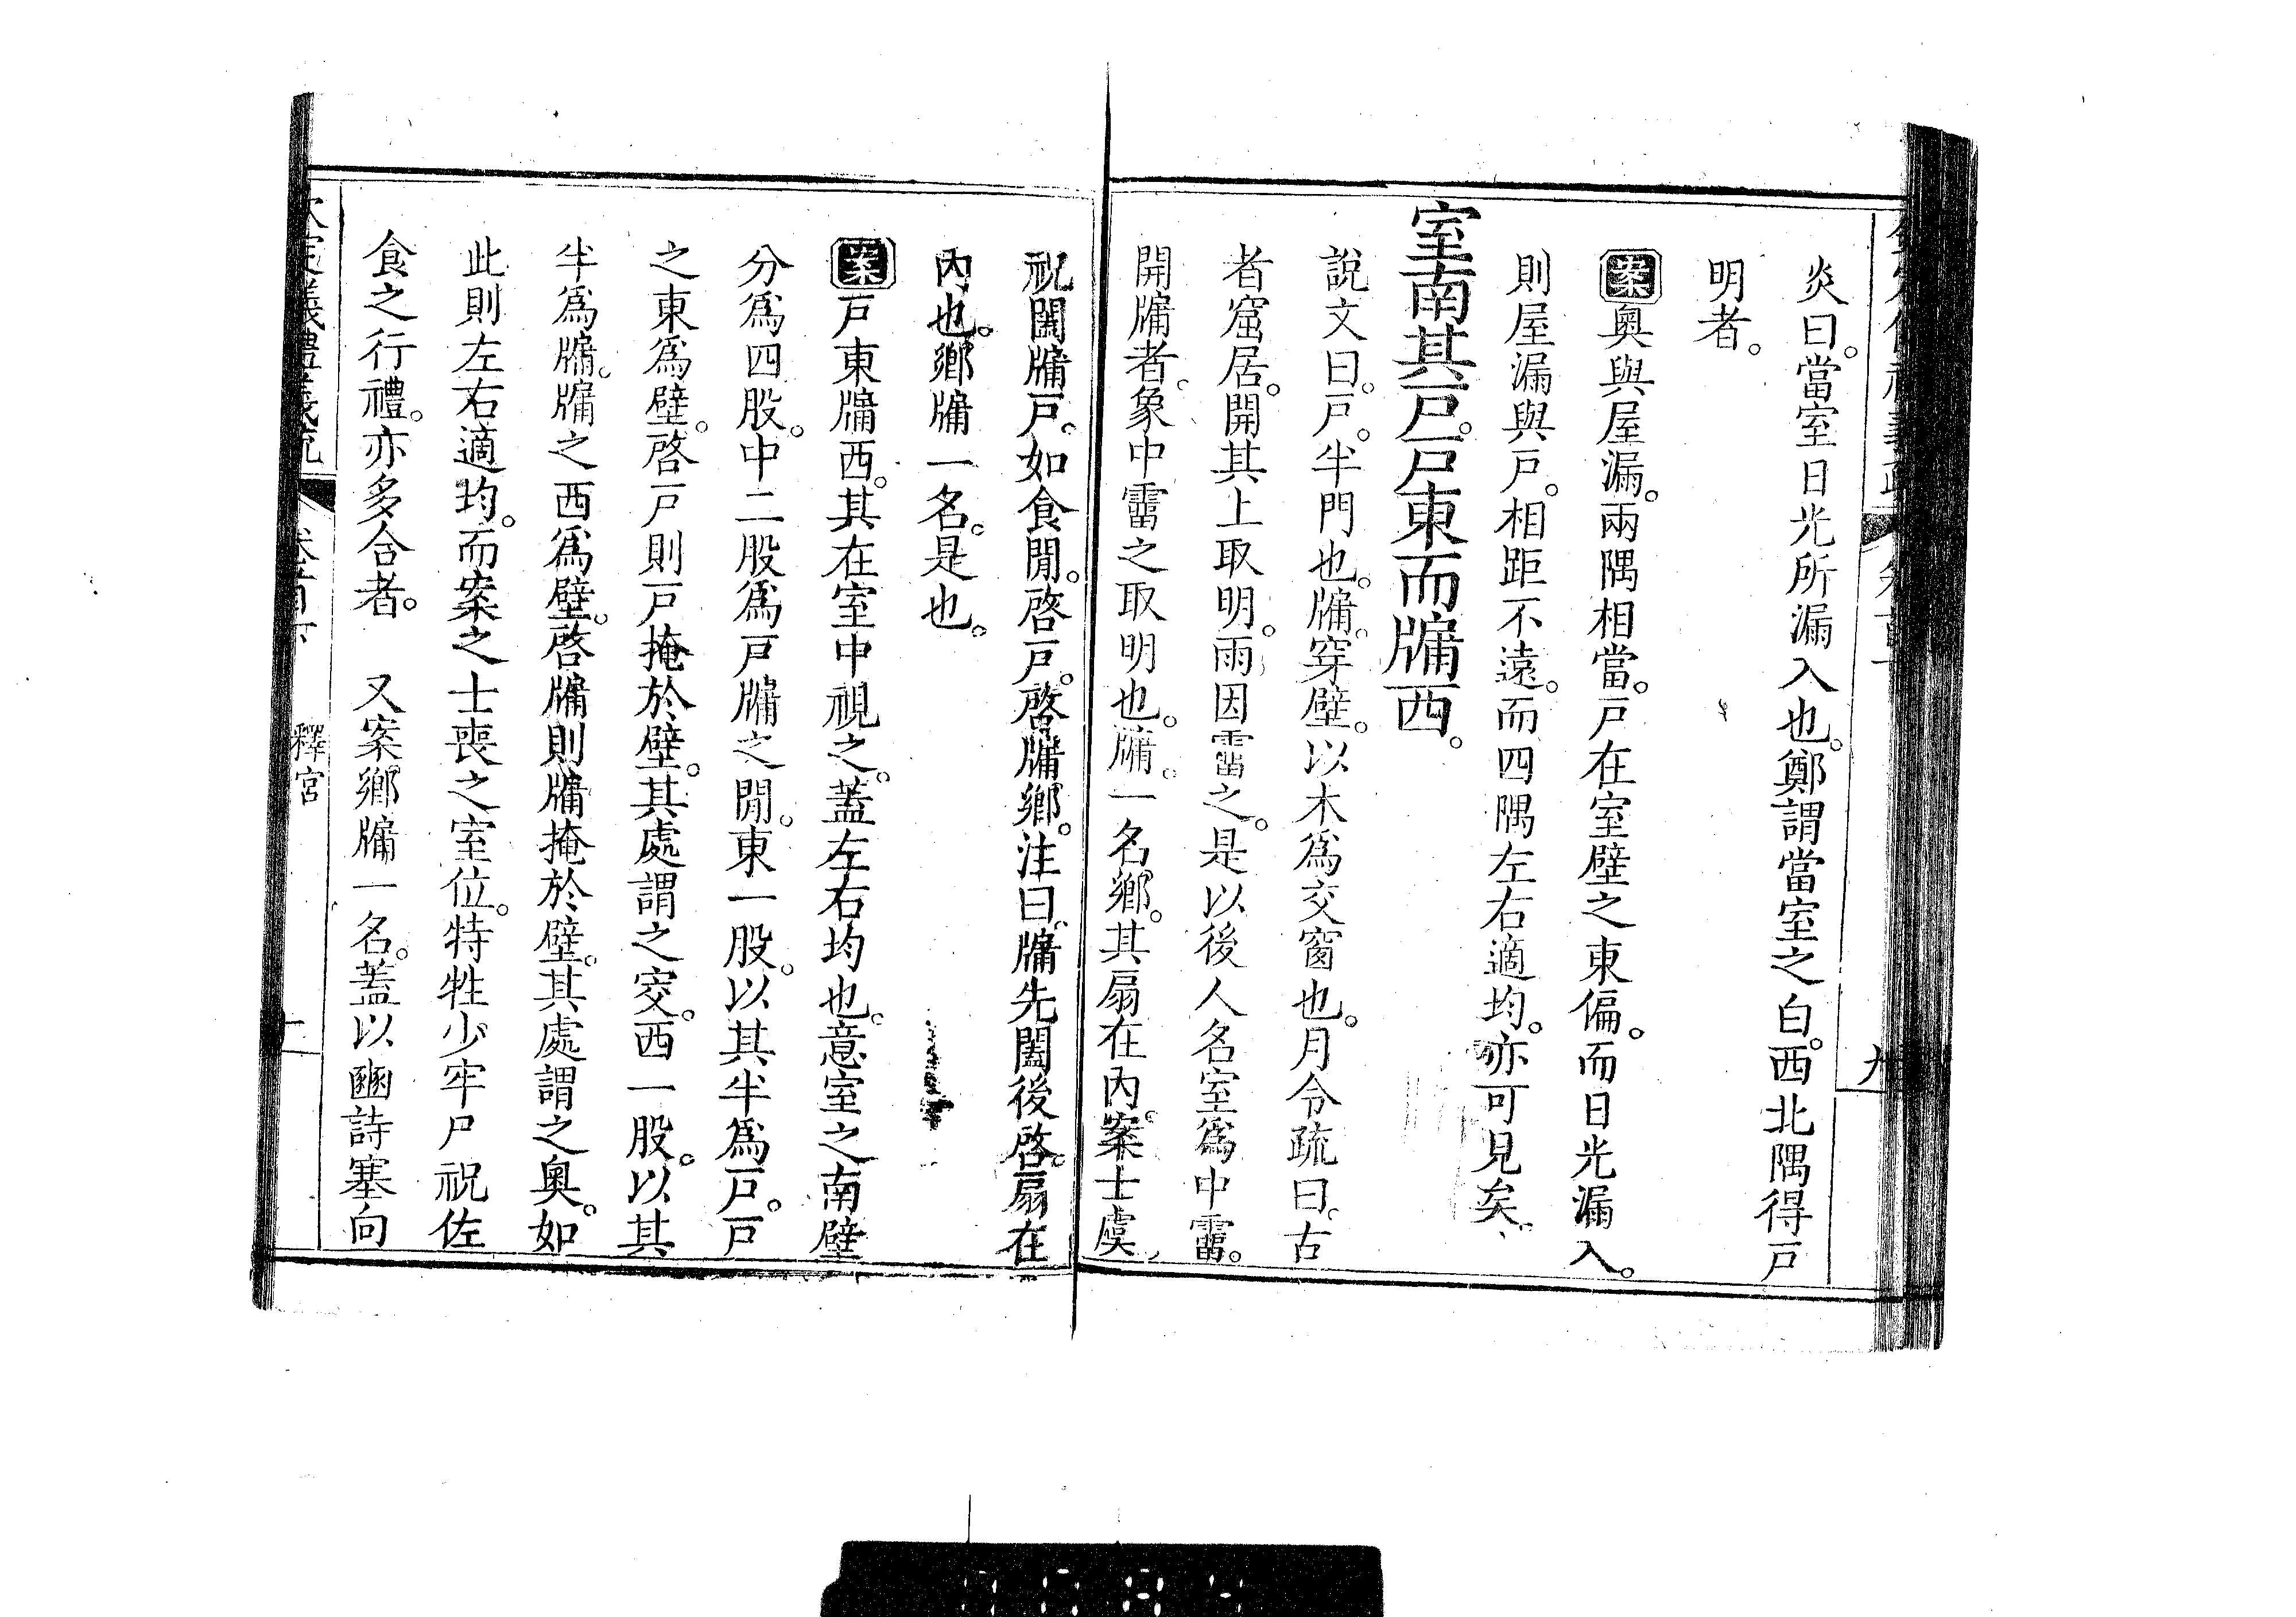 炎曰。當室日光所漏入也。鄭謂當室之白。西北隅得戶
明者。
案奧與屋漏。兩隅相當。戶在室壁之東偏。而日光漏入。
則屋漏與戶。相距不遠。而四隅左右適均。亦可見矣。
室南其戶。戶東而牖西。
說文曰。戶。半門也。牖。穿壁。以木爲交窗也。月令疏曰。古
者窟居。開其上取明。雨因霤之。是以後人名室爲中霤。
開牖者。象中霤之取明也。牖。一名鄉。其扇在內。案士虞
祝闔牖戶。如食閒。啓戶。啓牖鄉。注曰。牖先闔後啓。扇在
內也。鄉牖一名。是也。
案戶東牖西。其在室中視之。蓋左右均也。意室之南壁
分爲四股。中二股爲戶牖之閒。東一股。以其半爲戶。戶
之東爲壁。啓戶則戶掩於壁。其處謂之窔。西一股。以其
半爲牖。牖之西爲壁。啓牖則牖掩於壁。其處謂之奧。如
此則左右適均。而案之士喪之室位。特牲少牢尸祝佐
食之行禮。亦多合者。 又案鄉牖一名。蓋以豳詩塞向
釋宮